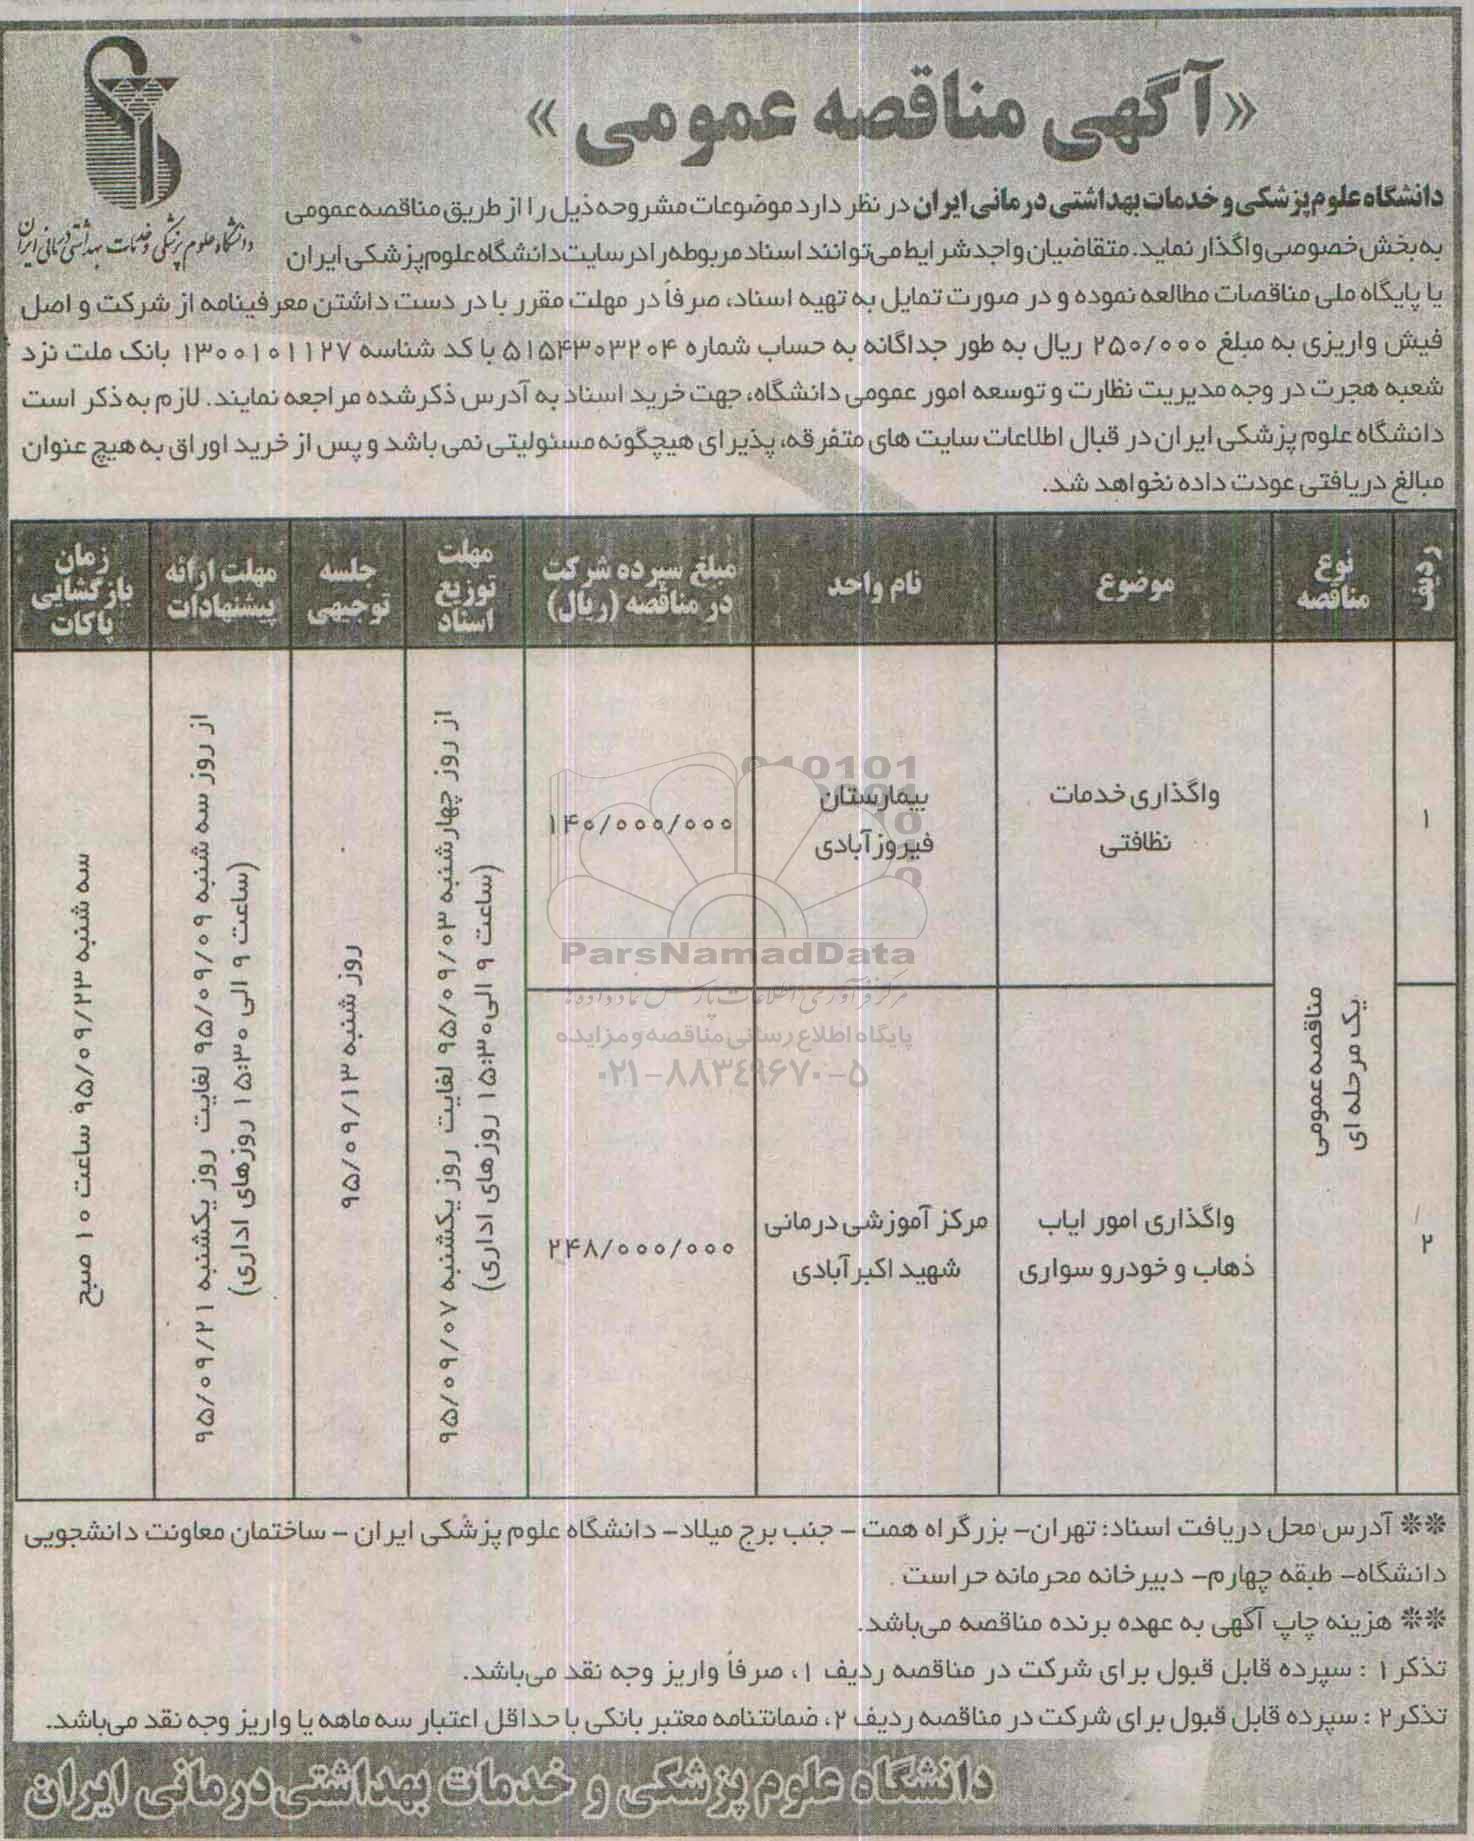 «آگهی مناقصه عمومی»
دانشگاه علوم پزشکی و خدمات بهداشتی درمانی ایران
دانشگاه علوم پزشکی و خدمات بهداشتی درمانی ایران در نظر دارد موضوعات مشروحه ذیل را از طریق مناقصه عمومی
به بخش خصوصی واگذار نماید. متقاضیان واجد شرایط می‌توانند اسناد مربوطه را در سایت دانشگاه علوم پزشکی ایران
یا پایگاه ملی مناقصات مطالعه نموده و در صورت تمایل به تهیه اسناد، صرفاً در مهلت مقرر با در دست داشتن معرفینامه از شرکت و اصل
فیش واریزی به مبلغ ۲۵۰/۰۰۰ ریال به طور جداگانه به حساب شماره ۵۱۵۴۳۰۳۲۰۴ با کد شناسه ۱۳۰۰۱۰۱۱۲۷ بانک ملت نزد
شعبه هجرت در وجه مدیریت نظارت و توسعه امور عمومی دانشگاه، جهت خرید اسناد به آدرس ذکرشده مراجعه نمایند. لازم به ذکر است
دانشگاه علوم پزشکی ایران در قبال اطلاعات سایت های متفرقه، پذیرای هیچگونه مسئولیتی نمی باشد و پس از خرید اوراق به هیچ عنوان
مبالغ دریافتی عودت داده نخواهد شد.
ردیف
نوع
مناقصه
موضوع
نام واحد
مبلغ سپرده شرکت
در مناقصه (ریال)
مهلت
توزیع
اسناد
جلسه
توجیهی
مهلت ارائه
پیشنهادات
زمان
بازگشایی
پاکات
۱
مناقصه عمومی
یک مرحله ای
واگذاری خدمات
نظافتی
بیمارستان
فیروزآبادی
۱۴۰/۰۰۰/۰۰۰
از روز چهارشنبه ۹۵/۰۹/۰۳ لغایت روز یکشنبه ۹۵/۰۹/۰۷
(ساعت ۹ الی ۱۵:۳۰ روزهای اداری)
روز شنبه ۹۵/۰۹/۱۳
از روز سه شنبه ۹۵/۰۹/۰۹ لغایت روز یکشنبه ۹۵/۰۹/۲۱
(ساعت ۹ الی ۱۵:۳۰ روزهای اداری)
سه شنبه ۹۵/۰۹/۲۳ ساعت ۱۰ صبح
۲
واگذاری امور ایاب
ذهاب و خودرو سواری
مرکز آموزشی درمانی
شهید اکبرآبادی
۲۴۸/۰۰۰/۰۰۰
ParsNamadData
مرکز فرآوری اطلاعات پارس نماد داده ها
پایگاه اطلاع رسانی مناقصه و مزایده
۰۲۱-۸۸۳۴۹۶۷۰-۵
** آدرس محل دریافت اسناد: تهران- بزرگراه همت - جنب برج میلاد- دانشگاه علوم پزشکی ایران - ساختمان معاونت دانشجویی
دانشگاه- طبقه چهارم- دبیرخانه محرمانه حراست.
** هزینه چاپ آگهی به عهده برنده مناقصه می‌باشد.
تذکر ۱ : سپرده قابل قبول برای شرکت در مناقصه ردیف ۱، صرفاً واریز وجه نقد می‌باشد.
تذکر ۲ : سپرده قابل قبول برای شرکت در مناقصه ردیف ۲، ضمانتنامه معتبر بانکی با حداقل اعتبار سه ماهه یا واریز وجه نقد می‌باشد.
دانشگاه علوم پزشکی و خدمات بهداشتی درمانی ایران